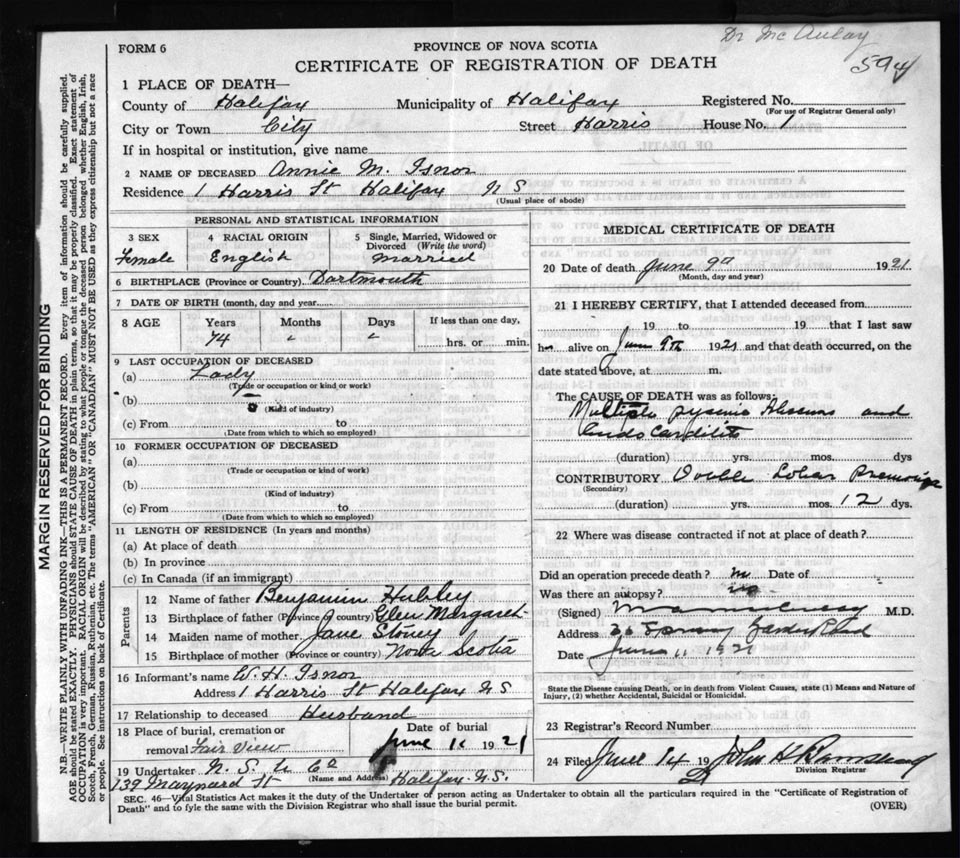 Dr McAulay
594
FORM 6
PROVINCE OF NOVA SCOTIA
CERTIFICATE OF REGISTRATION OF DEATH
1 PLACE OF DEATH—
County of Halifax Municipality of Halifax Registered No.
(For use of Registrar General only)
City or Town City Street Harris House No. 1
If in hospital or institution, give name
2 NAME OF DECEASED Annie M. Isnor
Residence 1 Harris St Halifax N S
(Usual place of abode)
PERSONAL AND STATISTICAL INFORMATION
3 SEX 4 RACIAL ORIGIN 5 Single, Married, Widowed or
Divorced (Write the word)
Female English Married
6 BIRTHPLACE (Province or Country) Dartmouth
7 DATE OF BIRTH (month, day and year)
8 AGE Years Months Days If less than one day,
74 " " hrs. or min.
9 LAST OCCUPATION OF DECEASED
(a) Lady
(Trade or occupation or kind or work)
(b)
(Kind of industry)
(c) From to
(Date from which to which so employed)
10 FORMER OCCUPATION OF DECEASED
(a)
(Trade or occupation or kind of work)
(b)
(Kind of industry)
(c) From to
(Date from which to which so employed)
11 LENGTH OF RESIDENCE (In years and months)
(a) At place of death
(b) In province
(c) In Canada (if an immigrant)
Parents
12 Name of father Benjamin Hubley
13 Birthplace of father (Province or country) Glen Margaret
14 Maiden name of mother Jane Stoney
15 Birthplace of mother (Province or country) Nova Scotia
16 Informant's name W. H. Isnor
Address 1 Harris St Halifax N S
17 Relationship to deceased Husband
18 Place of burial, cremation or Date of burial
removal Fair View June 11 1921
19 Undertaker N. S. U Co
(Name and Address)
139 Maynard St Halifax N.S.
MEDICAL CERTIFICATE OF DEATH
20 Date of death June 9th 1921
(Month, day and year)
21 I HEREBY CERTIFY, that I attended deceased from
19 to 19 that I last saw
h alive on June 9th 1921 and that death occurred, on the
date stated above, at m.
The CAUSE OF DEATH was as follows:
Multiple pyemic Abscess and
Endocarditis
(duration) yrs. mos. dys
CONTRIBUTORY Double Lobar Pneumonia
(Secondary)
(duration) yrs. mos. 12 dys.
22 Where was disease contracted if not at place of death?
Did an operation precede death? no Date of
Was there an autopsy? no
(Signed) M.D.
Address 36 Spring Garden Road
Date June 11 1921
State the Disease causing Death, or in death from Violent Causes, state (1) Means and Nature of
Injury, (2) whether Accidental, Suicidal or Homicidal.
23 Registrar's Record Number
24 Filed June 14 19 21 John H
Division Registrar
SEC. 46—Vital Statistics Act makes it the duty of the Undertaker of person acting as Undertaker to obtain all the particulars required in the "Certificate of Registration of
Death" and to fyle the same with the Division Registrar who shall issue the burial permit.
(OVER)
MARGIN RESERVED FOR BINDING
N.B.—WRITE PLAINLY WITH UNFADING INK—THIS IS A PERMANENT RECORD. Every item of information should be carefully supplied.
AGE should be stated EXACTLY. PHYSICIANS should STATE CAUSE OF DEATH in plain terms, so that it may be properly classified. Exact statement of
OCCUPATION is very important. RACIAL ORIGIN will be described by stating to what people or tongue the deceased person belonged whether English, Irish,
Scotch, French, German, Russian, Ruthenian, etc. The terms "AMERICAN" or "CANADIAN" MUST NOT BE USED as they express citizenship but not a race
or people. See instructions on back of Certificate.